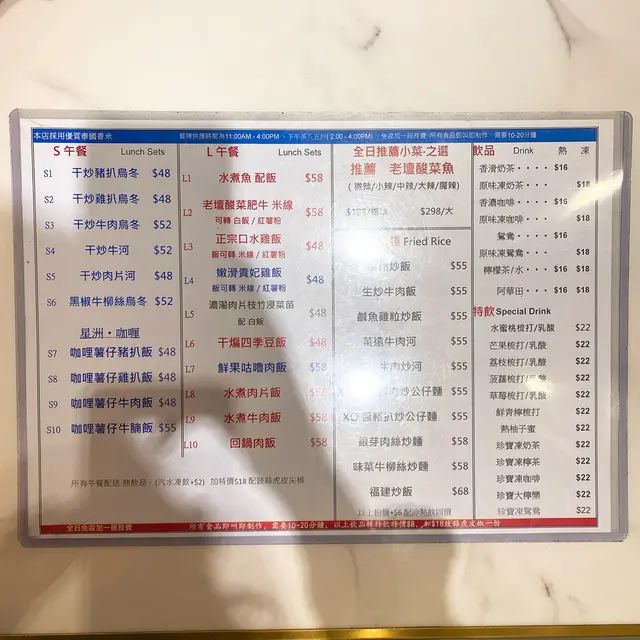 本店採用優質泰國香米
餐牌供應時間為11:00AM - 4:00PM
(2:00 - 4:00PM)
免收加一服務費
所有食品即叫即制作,需要10-20分鐘
S 午餐 Lunch Sets
S1 干炒豬扒烏冬 $48
S2 干炒雞扒烏冬 $48
S3 干炒牛肉烏冬 $52
S4 干炒牛河 $52
S5 干炒肉片河 $48
S6 黑椒牛柳絲烏冬 $52
星洲·咖喱
S7 咖喱薯仔豬扒飯 $48
S8 咖喱薯仔雞扒飯 $48
S9 咖喱薯仔牛肉飯 $48
S10 咖喱薯仔牛腩飯 $55
L 午餐 Lunch Sets
L1 水煮魚 配飯 $58
L2 老壇酸菜肥牛 米線 $58
可轉 白飯 / 紅薯粉
L3 正宗口水雞飯 $48
飯可轉 米線 / 紅薯粉
L4 嫩滑貴妃雞飯 $48
飯可轉 米線 / 紅薯粉
L5 濃湯肉片枝竹浸菜苗 $48
配 白飯
L6 干煸四季豆飯 $48
L7 鮮果咕嚕肉飯
L8 水煮肉片飯
L9 水煮牛肉飯 $58
L10 回鍋肉飯 $58
所有午餐配送:熱飲品、(汽水凍飲+$2) 加特價$18 配豉蒜虎皮尖椒
全日推薦小菜-之選
推薦 老壇酸菜魚
( 微辣/小辣/中辣/大辣/魔辣)
$298/大
Fried Rice
炒飯 $55
生炒牛肉飯 $55
鹹魚雞粒炒飯 $55
菜遠牛肉河 $55
肉炒河 $55
肉炒公仔麵 $55
XO 醬豬扒炒公仔麵 $55
銀芽肉絲炒麵 $58
味菜牛柳絲炒麵 $58
福建炒飯 $68
以上粉麵+$6 配冷熱飲同價
飲品 Drink 熱 凍
香滑奶茶・・・・ $16
原味凍奶茶・・・・ $18
香濃咖啡・・・・ $16
原味凍咖啡・・・・ $18
鴛鴦・・・・ $16
原味凍鴛鴦・・・・ $18
檸檬茶/水・・・ $16 $18
阿華田・・・・ $16 $18
特飲 Special Drink
水蜜桃梳打/乳酸 $22
芒果梳打/乳酸 $22
荔枝梳打/乳酸 $22
菠蘿梳打/乳酸 $22
草莓梳打/乳酸 $22
鮮青檸梳打 $22
熱柚子蜜 $22
珍寶凍奶茶 $22
珍寶凍檸茶 $22
珍寶凍咖啡 $22
珍寶大檸樂 $22
珍寶凍鴛鴦 $22
全日免收加一服務費
所有食品即叫即制作,需要10-20分鐘,